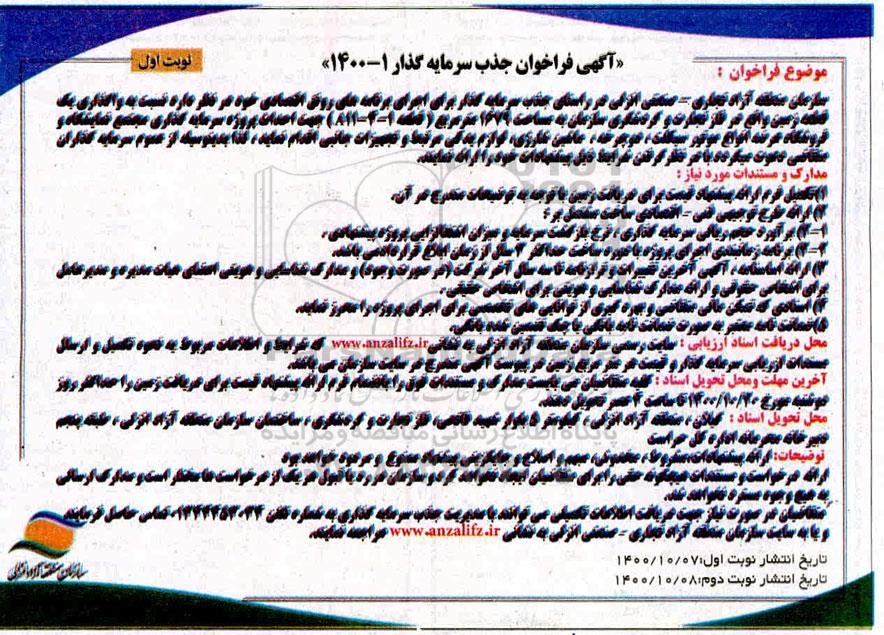 «آگهی فراخوان جذب سرمایه گذار ۱-۱۴۰۰»
نوبت اول
موضوع فراخوان :
سازمان منطقه آزاد تجاری – صنعتی انزلی در راستای جذب سرمایه گذار برای اجرای برنامه های رونق اقتصادی خود در نظر دارد نسبت به واگذاری یک
قطعه زمین واقع در فاز تجارت و گردشگری سازمان به مساحت ۱۶۷۹ مترمربع ( قطعه جهت احداث پروژه سرمایه گذاری مجتمع نمایشگاه و
فروشگاه عرضه انواع موتور سیکلت ، دوچرخه ، ماشین شارژی، لوازم یدکی مرتبط و تجهیزات جانبی اقدام نماید ، لذا بدینوسیله از عموم سرمایه گذاران
متقاضی دعوت میگردد با در نظر گرفتن شرایط ذیل پیشنهادات خود را ارائه نمایند.
مدارک و مستندات مورد نیاز :
۱)تکمیل فرم ارائه پیشنهاد قیمت برای دریافت زمین با توجه به توضیحات مندرج در آن.
۲) ارائه طرح توجیهی فنی – اقتصادی ساخت مشتمل بر :
۱-۲) برآورد حجم ریالی سرمایه گذاری ، نرخ بازگشت سرمایه و میزان اشتغالزایی پروژه پیشنهادی .
۲-۲) برنامه زمانبندی اجرای پروژه با دوره ساخت حداکثر ۳ سال از زمان ابلاغ قرارداد می باشد.
۳) ارائه اساسنامه ، آگهی آخرین تغییرات و ترازنامه تا سه سال آخر شرکت (در صورت وجود) و مدارک شناسایی و هویتی اعضای هیات مدیره و مدیرعامل
برای اشخاص حقوقی و ارائه مدارک شناسایی و هویتی برای اشخاص حقیقی .
۴) اسنادی که تمکن مالی متقاضی و بهره گیری از توانایی های تخصصی برای اجرای پروژه را محرز نماید.
۵)ضمانت نامه معتبر به صورت ضمانت نامه بانکی یا چک تضمین شده بانکی.
محل دریافت اسناد ارزیابی : سایت رسمی سازمان منطقه آزاد انزلی به نشانی www.anzalifz.ir که شرایط و اطلاعات مربوط به نحوه تکمیل و ارسال
مستندات ارزیابی سرمایه گذار و قیمت هر متر مربع زمین در پیوست آگهی مندرج در سایت سازمان می باشد.
آخرین مهلت ومحل تحویل اسناد : کلیه متقاضیان می بایست مدارک و مستندات فوق را باانضمام فرم ارائه پیشنهاد قیمت برای دریافت زمین را حداکثر روز
دوشنبه مورخ ۱۴۰۰/۱۰/۲۰ تا ساعت ۴ عصر تحویل دهند.
محل تحویل اسناد : گیلان ، منطقه آزاد انزلی ، کیلومتر ۵ بلوار شهید قائمی، فاز تجارت و گردشگری ، ساختمان سازمان منطقه آزاد انزلی ، طبقه پنجم
دبیرخانه محرمانه اداره کل حراست
توضیحات: ارائه پیشنهادات مشروط ، مخدوش، مبهم و اصلاح و جایگزینی پیشنهاد ممنوع و مردود خواهد بود
ارائه درخواست و مستندات هیچگونه حقی را برای متقاضیان ایجاد نخواهد کرد و سازمان در رد یا قبول هر یک از درخواست ها مختار است و مدارک ارسالی
به هیچ وجه مسترد نخواهد شد.
متقاضیان در صورت نیاز جهت دریافت اطلاعات تکمیلی می توانند با مدیریت جذب سرمایه گذاری به شماره تلفن تماس حاصل فرمایند
و یا به سایت سازمان منطقه آزاد تجاری – صنعتی انزلی به نشانی www.anzalifz.ir مراجعه نمایند.
تاریخ انتشار نوبت اول: ۱۴۰۰/۱۰/۰۷
تاریخ انتشار نوبت دوم: ۱۴۰۰/۱۰/۰۸
سازمان منطقه آزاد انزلی
پایگاه اطلاع رسانی مناقصه و مزایده